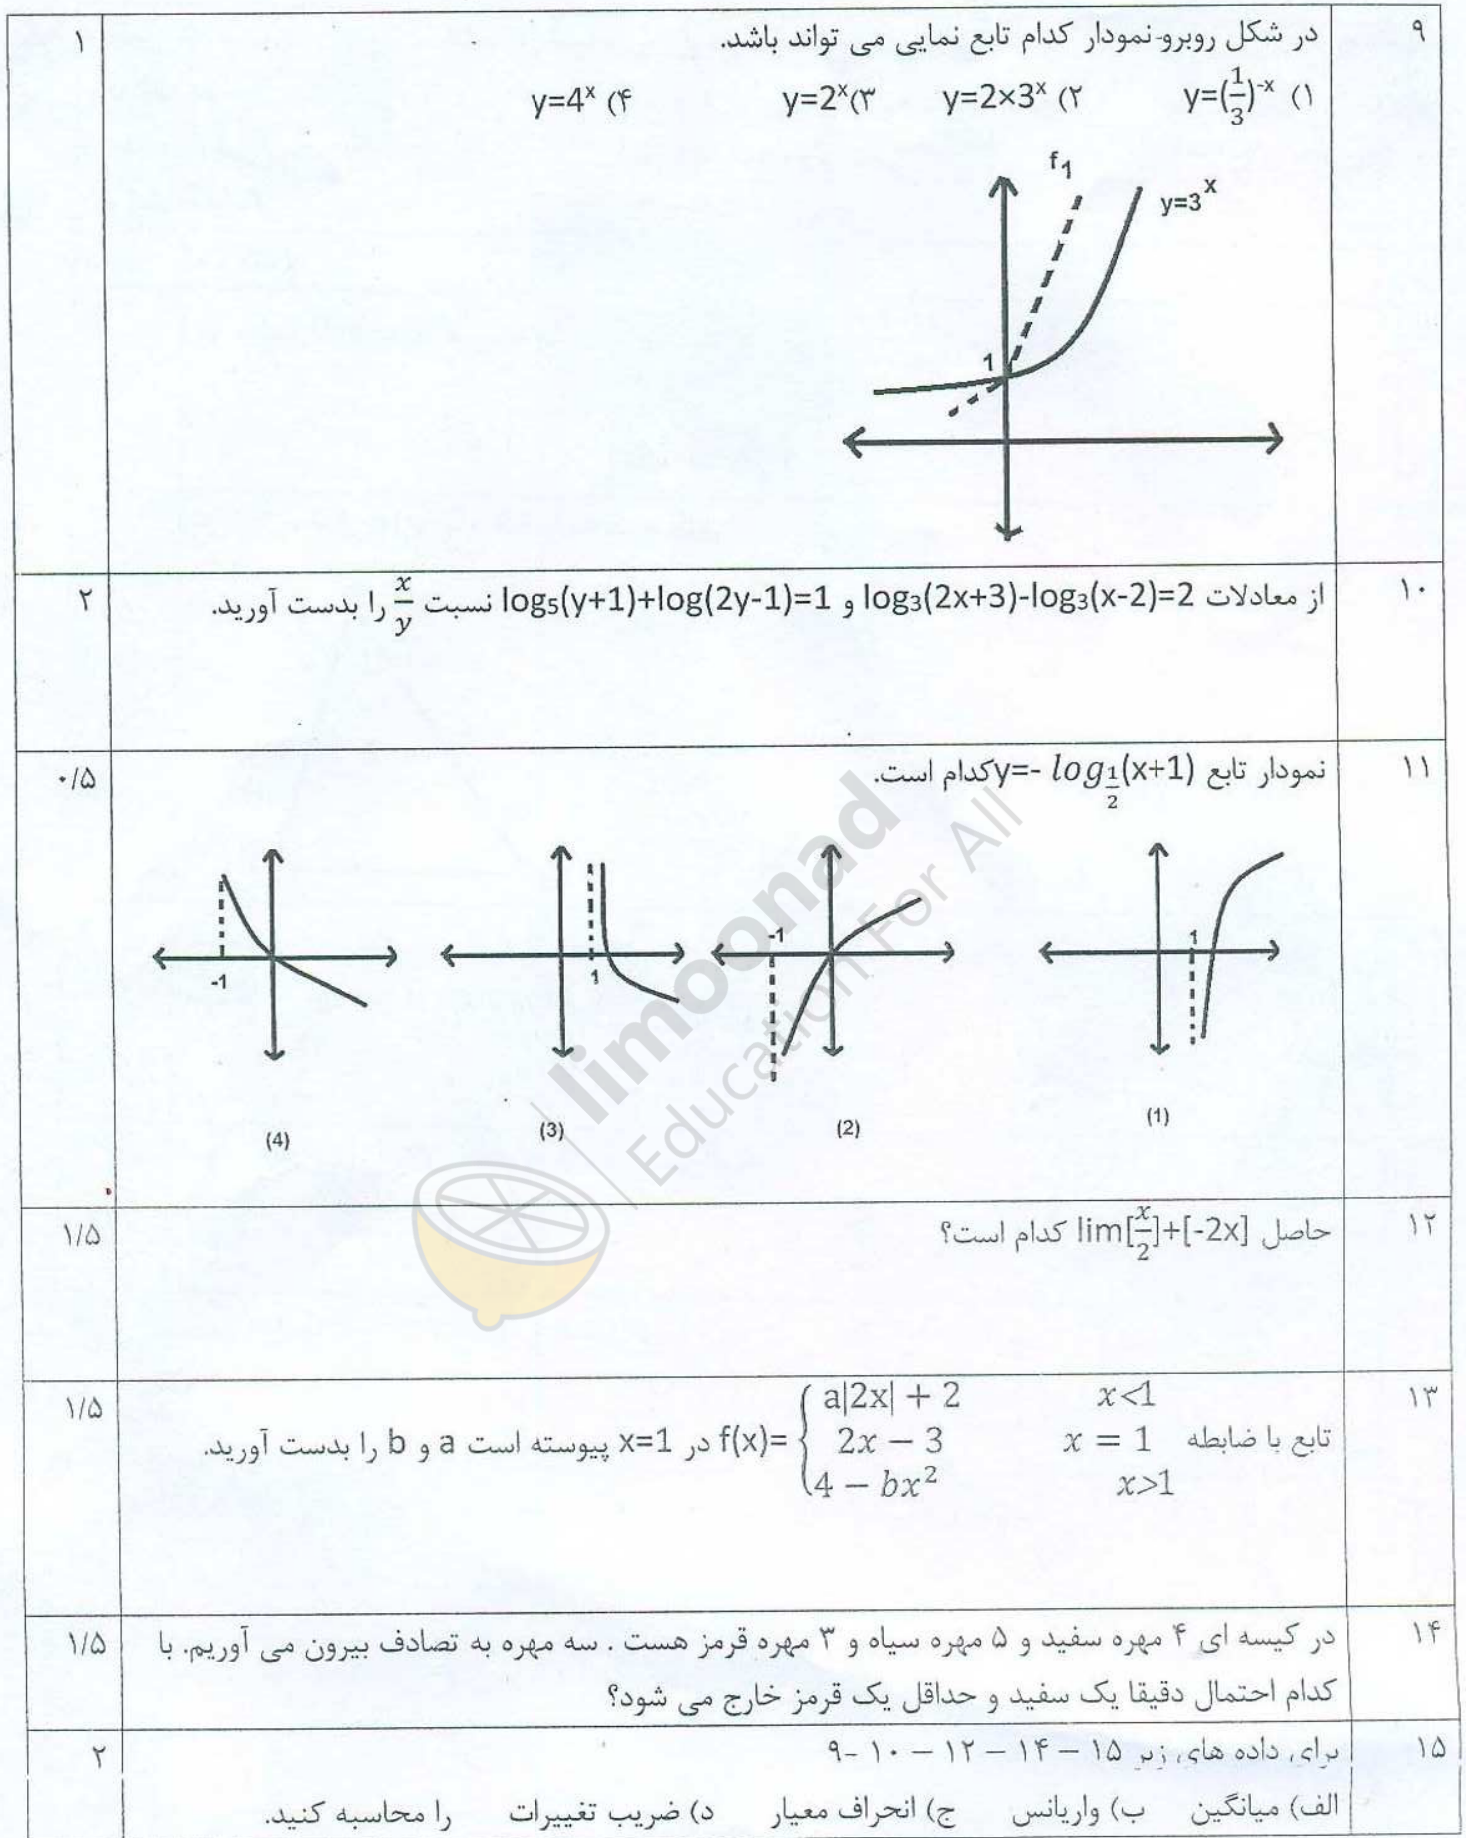 ۹ در شکل روبرو نمودار کدام تابع نمایی می تواند باشد. ۱
۱) y=(1/3)^-x ۲) y=2×3^x ۳) y=2^x ۴) y=4^x
f1
y=3^x
1
۱۰ از معادلات log3(2x+3)-log3(x-2)=2 و log5(y+1)+log(2y-1)=1 نسبت x/y را بدست آورید. ۲
۱۱ نمودار تابع y=- log1/2(x+1) کدام است. ۰/۵
1
-1
1
-1
(1)
(2)
(3)
(4)
۱۲ حاصل lim[x/2]+[-2x] کدام است؟ ۱/۵
۱۳ تابع با ضابطه f(x)= { a|2x| + 2 x<1
2x − 3 x = 1
4 − bx² x>1
در x=1 پیوسته است a و b را بدست آورید. ۱/۵
۱۴ در کیسه ای ۴ مهره سفید و ۵ مهره سیاه و ۳ مهره قرمز هست . سه مهره به تصادف بیرون می آوریم. با ۱/۵
کدام احتمال دقیقا یک سفید و حداقل یک قرمز خارج می شود؟
۱۵ برای داده های زیر ۱۵ – ۱۴ – ۱۲ – ۱۰ -۹ ۲
الف) میانگین ب) واریانس ج) انحراف معیار د) ضریب تغییرات را محاسبه کنید.
limoonad
Education For All